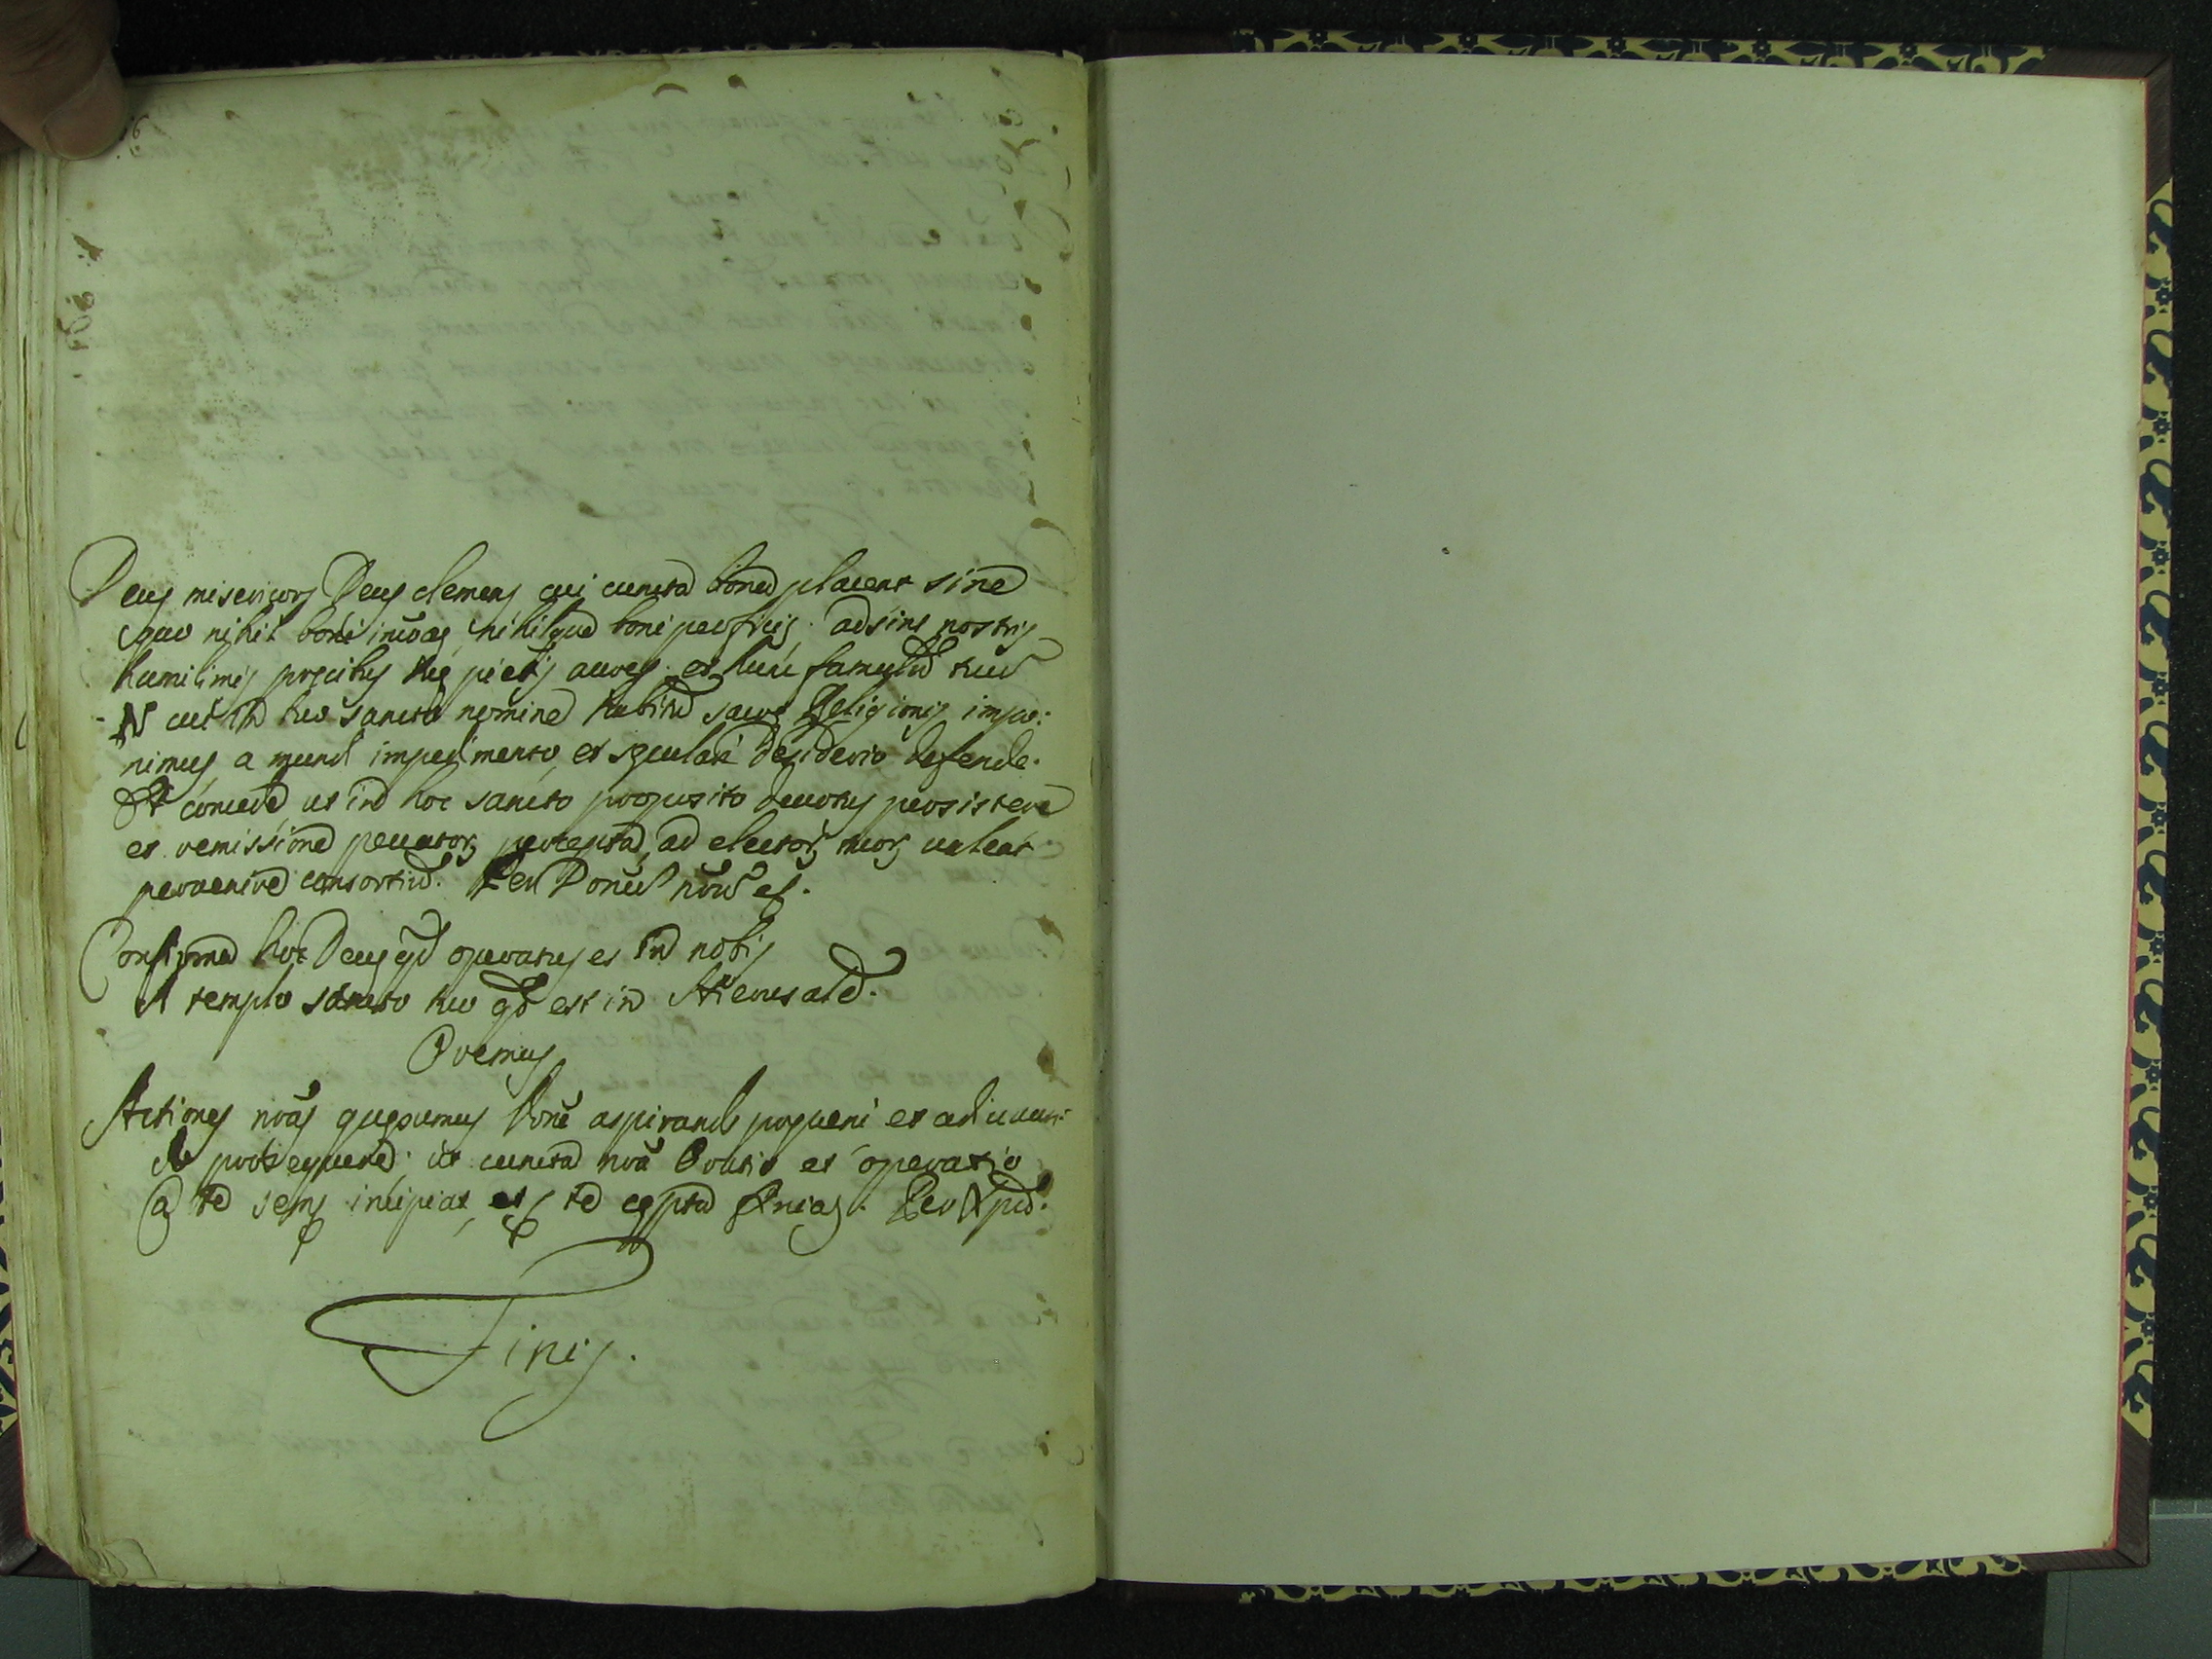 Deus misericors Deus clemens cui cuncta bona placent sine
quo nihil boni incoas, nihilque boni perficis. adsint nostris
humilimis precibus tuę pietis aures. et hunc famulũ tuũ
N cui in tuo sancto nomine habitũ sacrę Religionis impo:
nimus, a mundi impedimento, et sęculari desiderio defende.
Et concede, ut in hoc sancto proposito deuotus persistere
et remissione peccatorꝫ percepta, ad electorꝫ tuorꝫ ualeat
peruenire consortiũ. Per Donũ nrũ es.
Confirma hoc Deus qd operatus es in nobis
A templo sancto tuo qd est in Hierusalẽ.
Oremus
Actiones nrãs quęsumus Done aspirando pręueni et adiuuan:
do prosequere. ut cuncta nrã Oratio et operatio
a te semp incipiat, et p te cępta finias. Per Xpũ.
Finis.